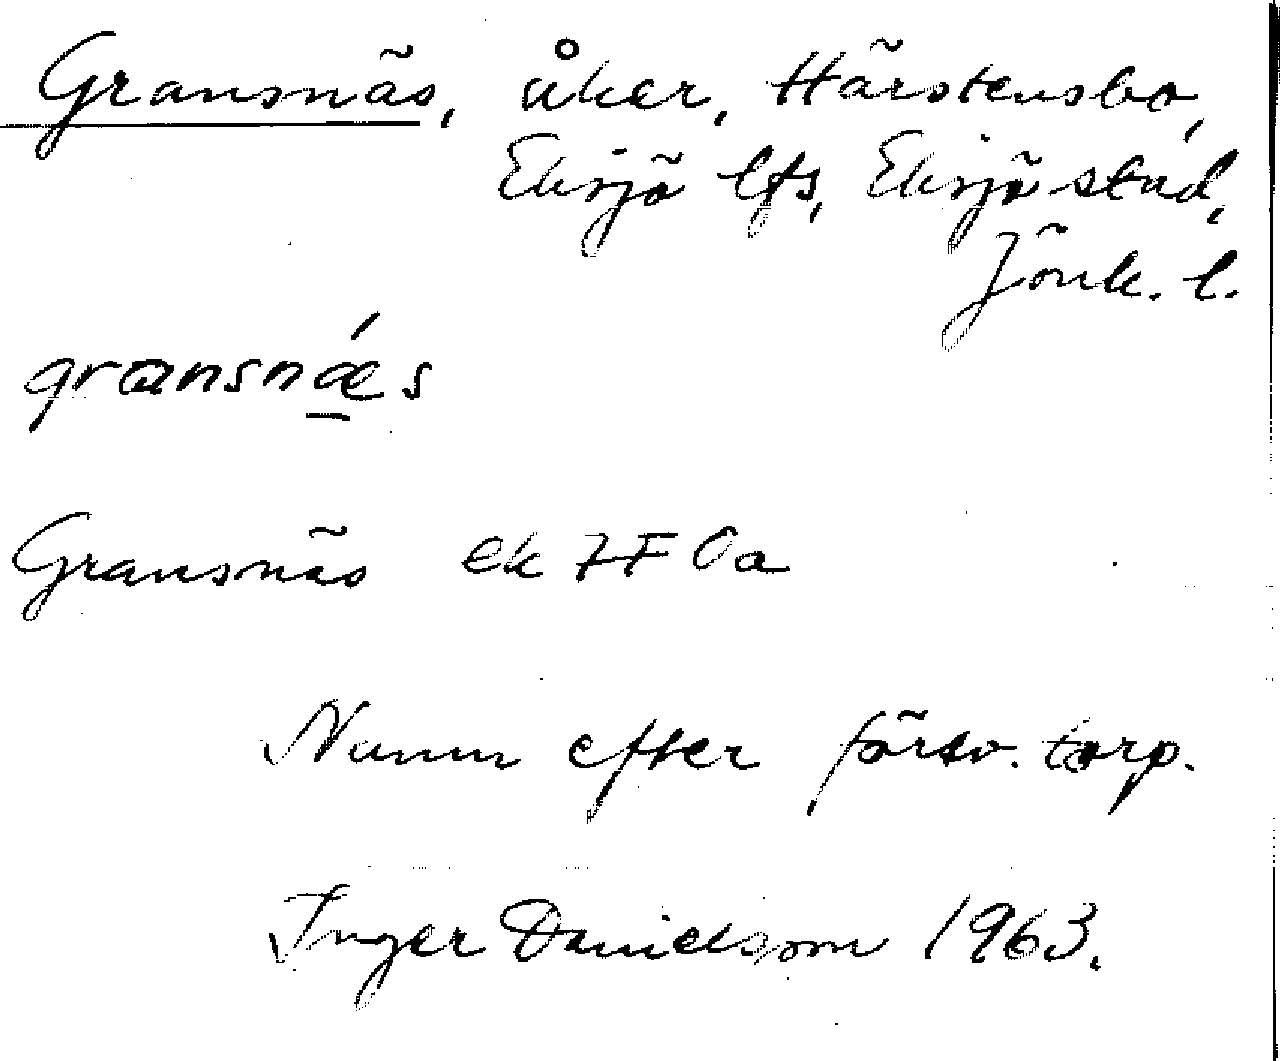 Gransnäs, åker, Härstensbo,
Eksjö lfs, Eksjö stad,
Jönk. l.
gransnǽs
Gransnäs ek 7F 0a
Namn efter försv. torp.
Inger Danielsson 1963.